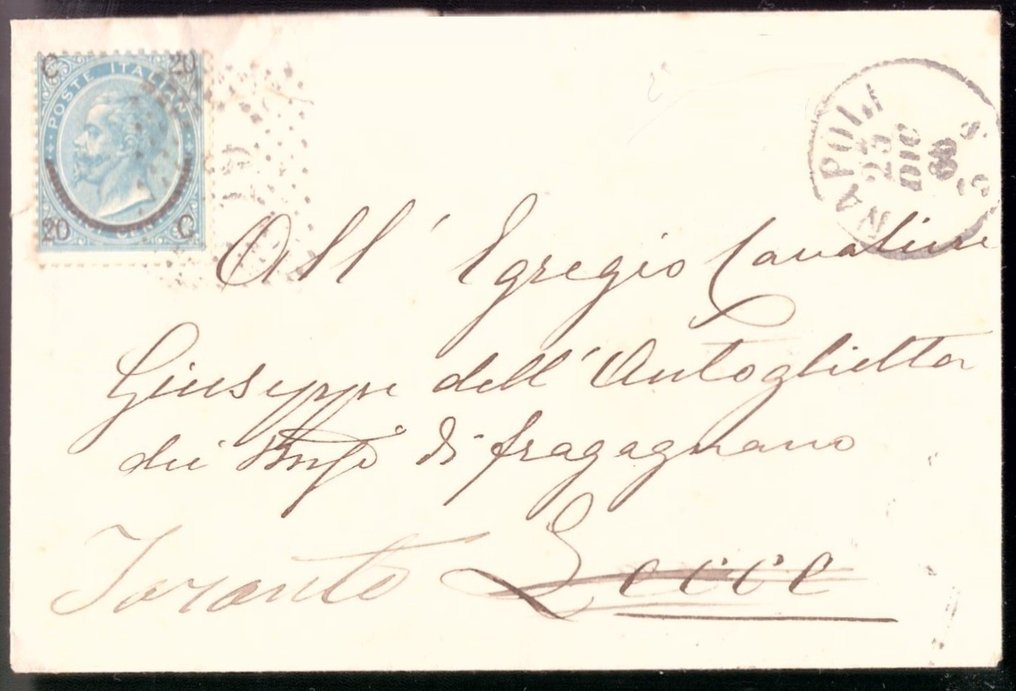 C 20
POSTE ITALIANE
20 C
NAPOLI
25
DIC
All' Egregio Cavaliere
Giuseppe dell'Antoglietta
dei di Fragagnano
Taranto Lecce